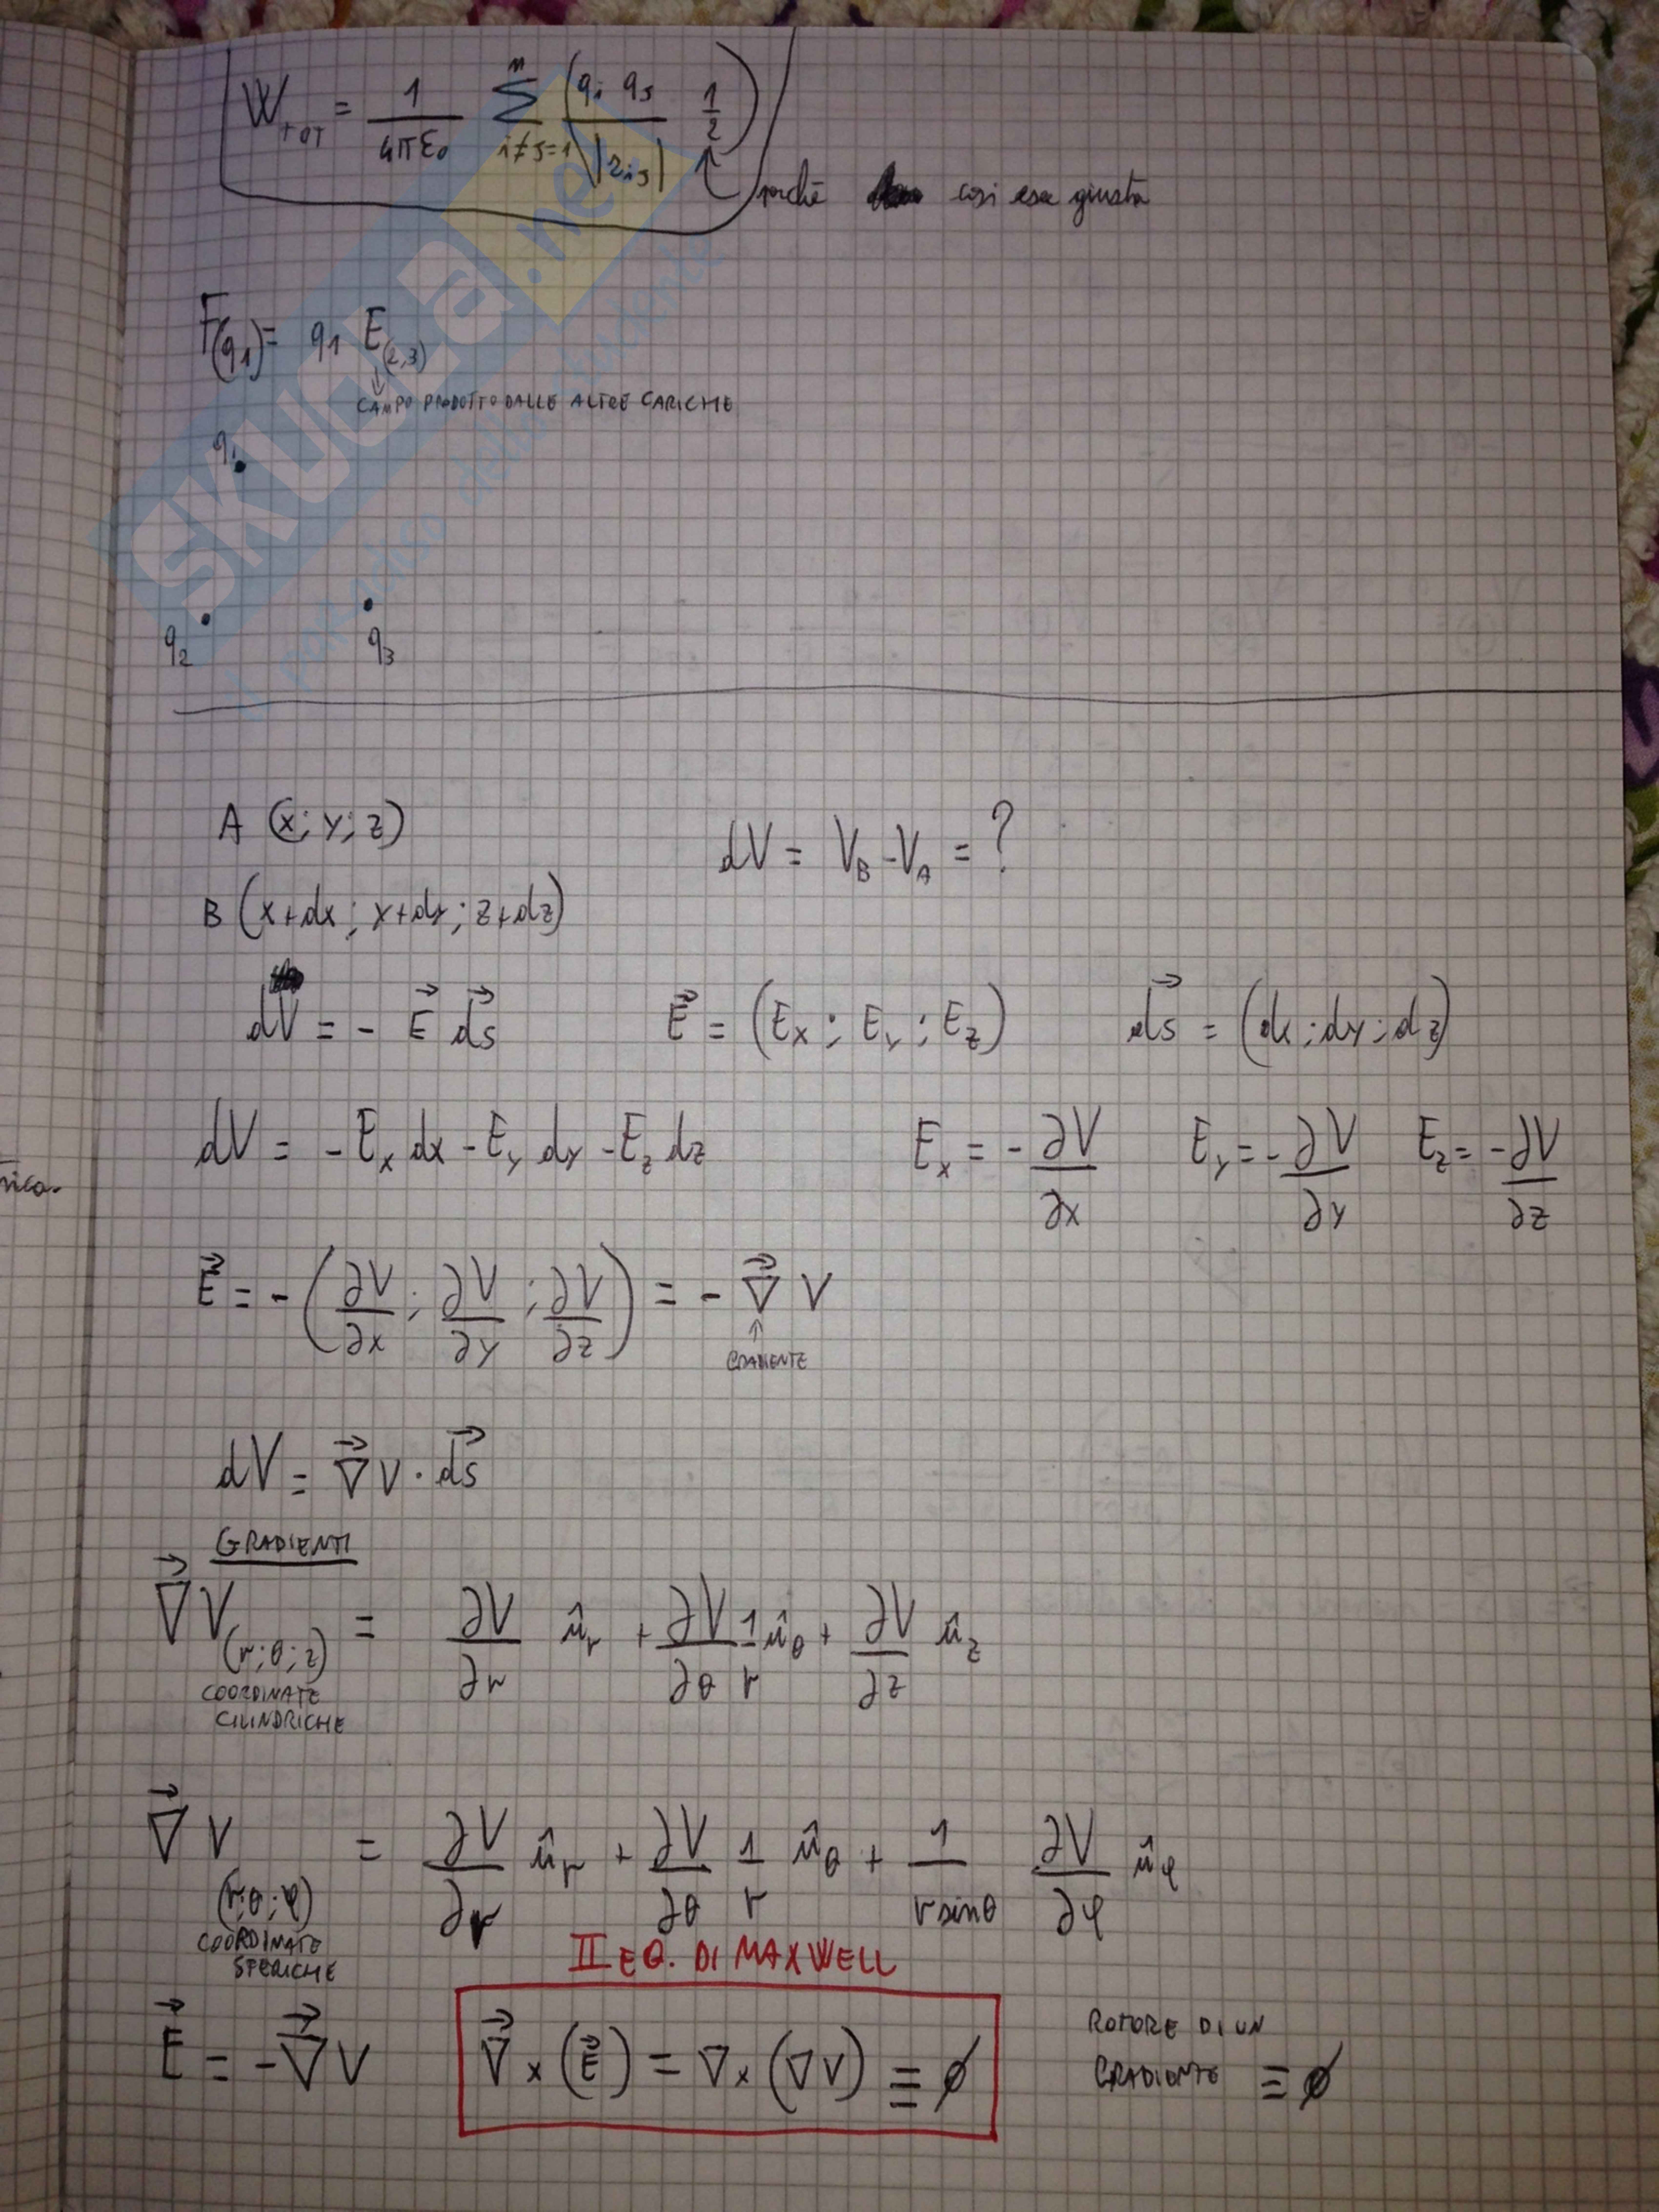 W_TOT = 1/(4πε₀) Σ^n_{i≠j=1} (q_i q_j / |r_ij| 1/2)
perché così esce giusta
F(q₁) = q₁ E_(2,3)
CAMPO PRODOTTO DALLE ALTRE CARICHE
q₁
q₂ q₃
A (x; y; z)
dV = V_B - V_A = ?
B (x+dx; y+dy; z+dz)
dV = - E⃗ ds⃗ E⃗ = (E_x; E_y; E_z) ds⃗ = (dx; dy; dz)
dV = - E_x dx - E_y dy - E_z dz E_x = - ∂V/∂x E_y = - ∂V/∂y E_z = - ∂V/∂z
E⃗ = - (∂V/∂x; ∂V/∂y; ∂V/∂z) = - ∇⃗ V
GRADIENTE
dV = ∇⃗ V · ds⃗
GRADIENTI
∇⃗ V_(r; θ; z) = ∂V/∂r û_r + ∂V/∂θ 1/r û_θ + ∂V/∂z û_z
COORDINATE
CILINDRICHE
∇⃗ V_(r; θ; φ) = ∂V/∂r û_r + ∂V/∂θ 1/r û_θ + 1/(r sinθ) ∂V/∂φ û_φ
COORDINATE
SFERICHE
II EQ. DI MAXWELL
E⃗ = - ∇⃗ V ∇⃗ × (E⃗) = ∇ × (∇V) ≡ ∅
ROTORE DI UN
GRADIENTE ≡ ∅
SKUOLA.net
il paradiso dello studente